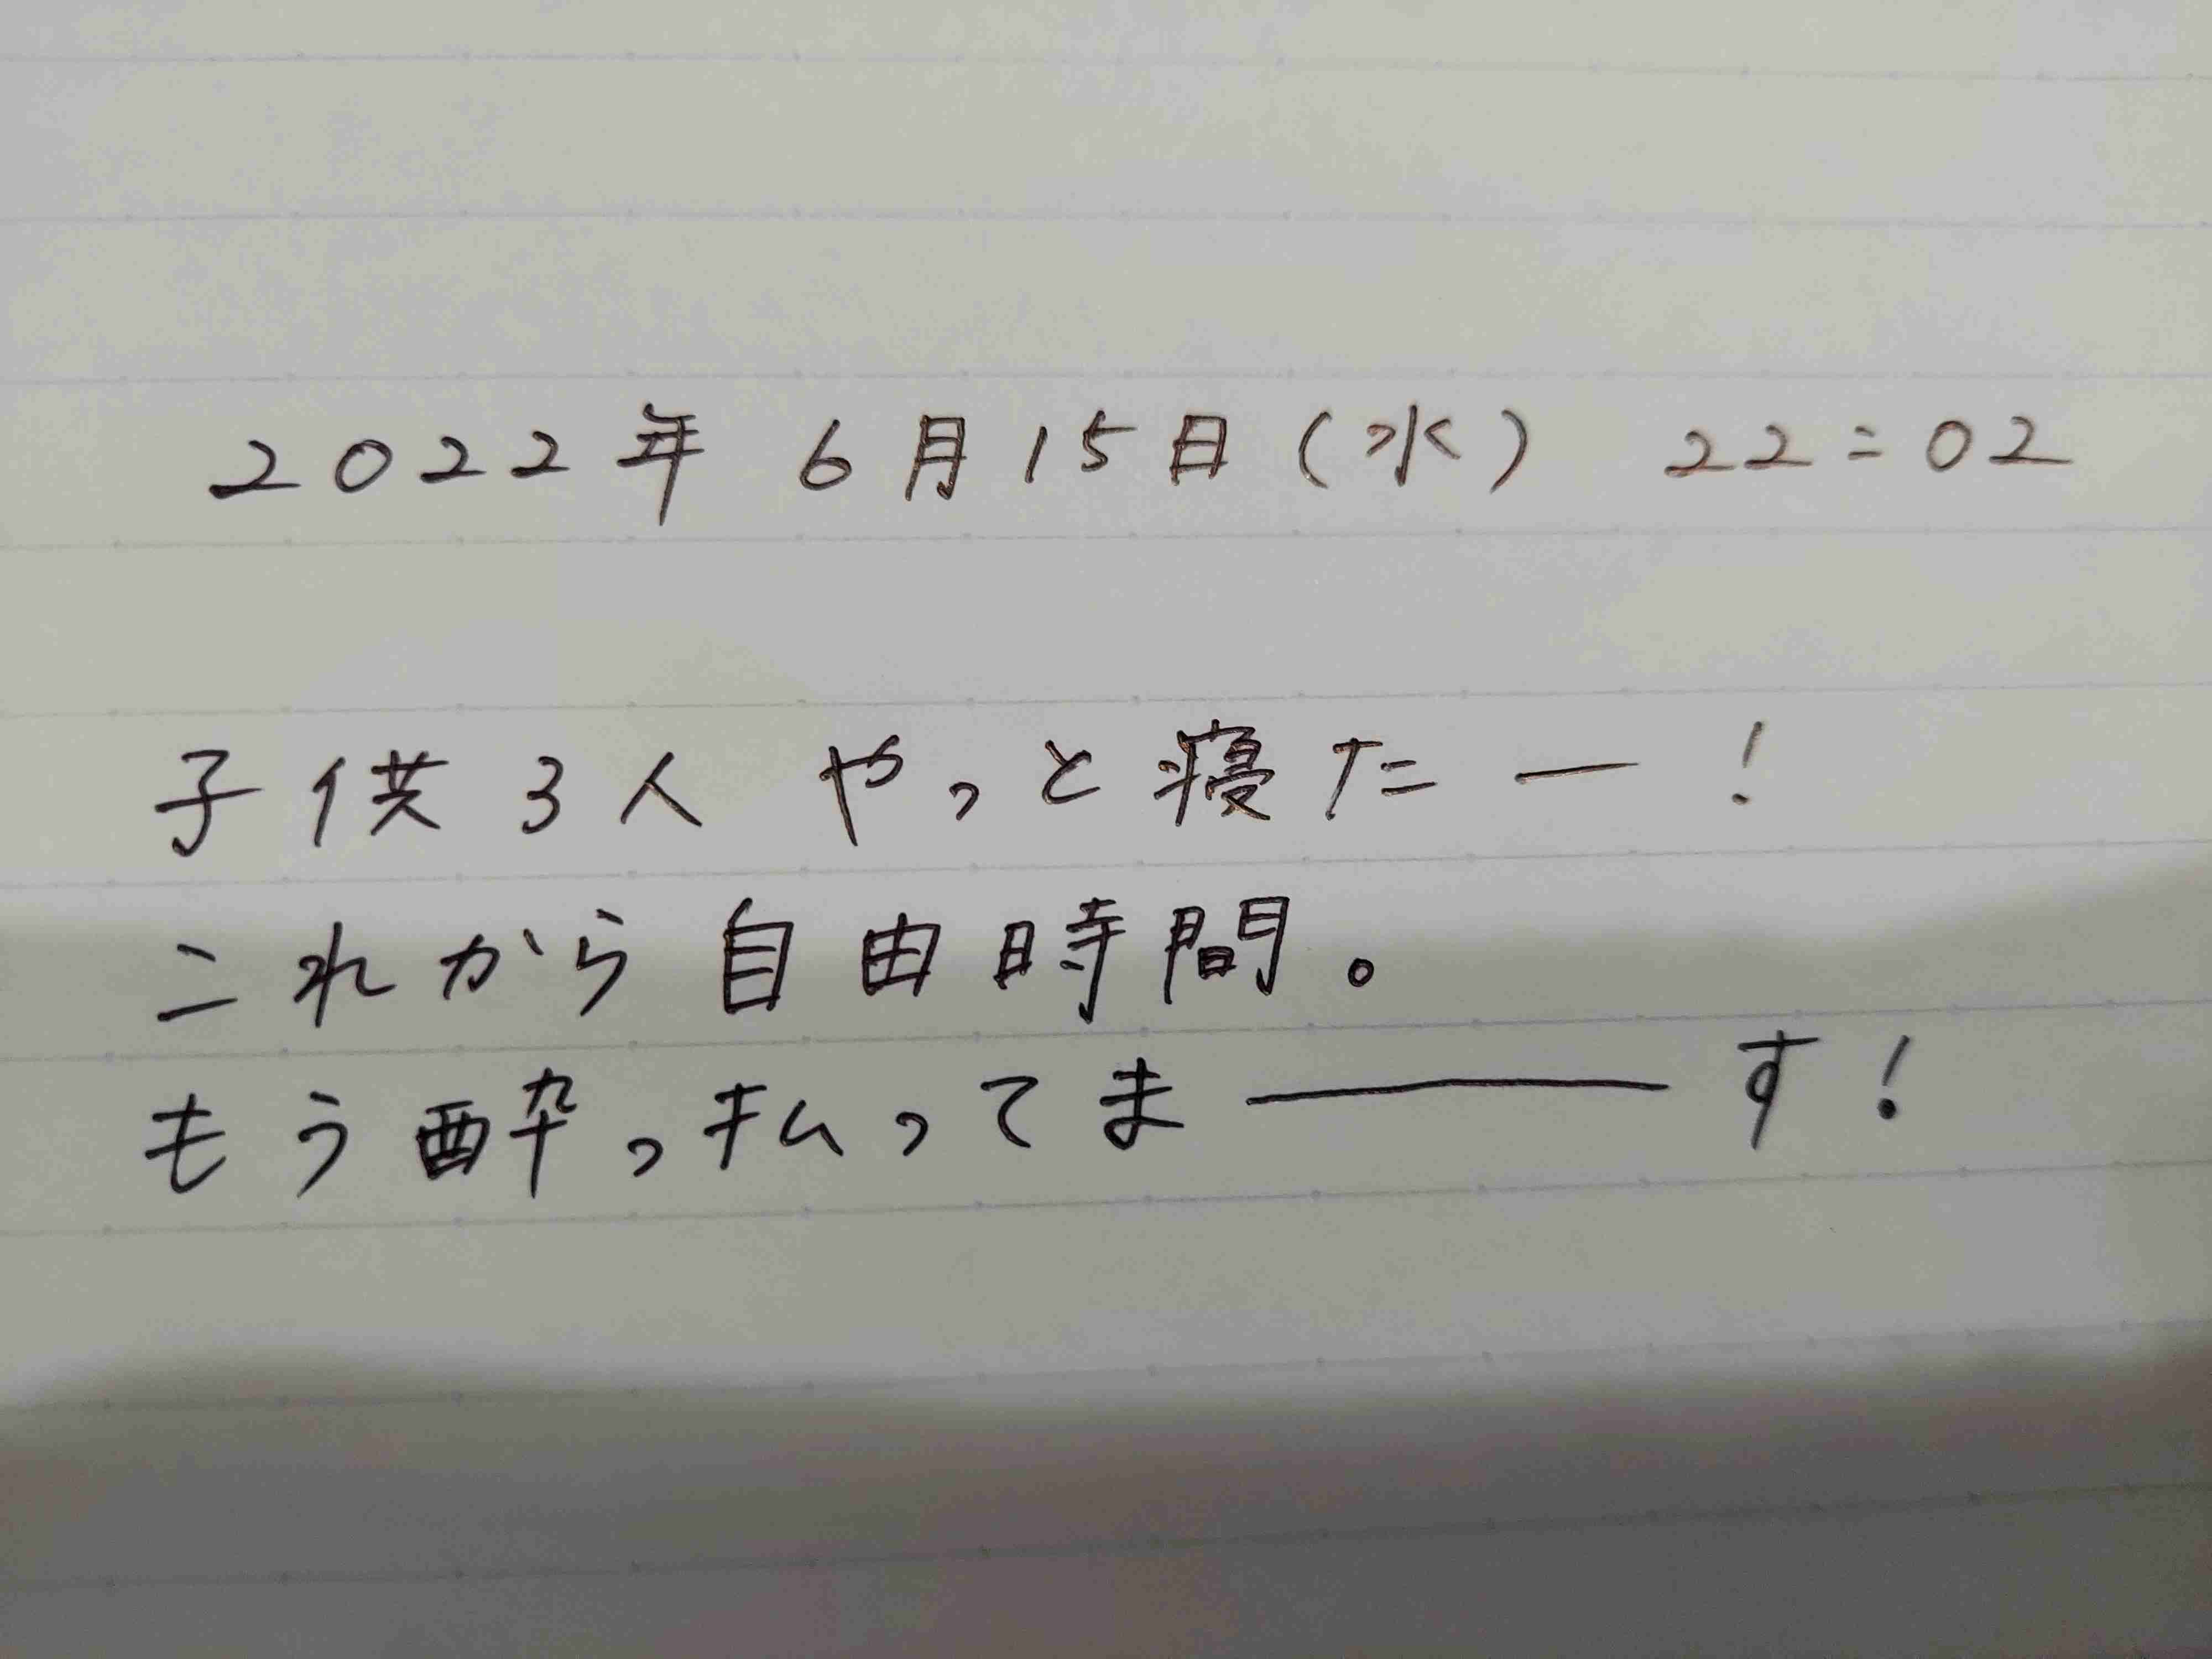 2022年 6月15日(水) 22:02
子供3人 やっと寝たー!
これから自由時間。
もう酔っ払ってまーーーす!